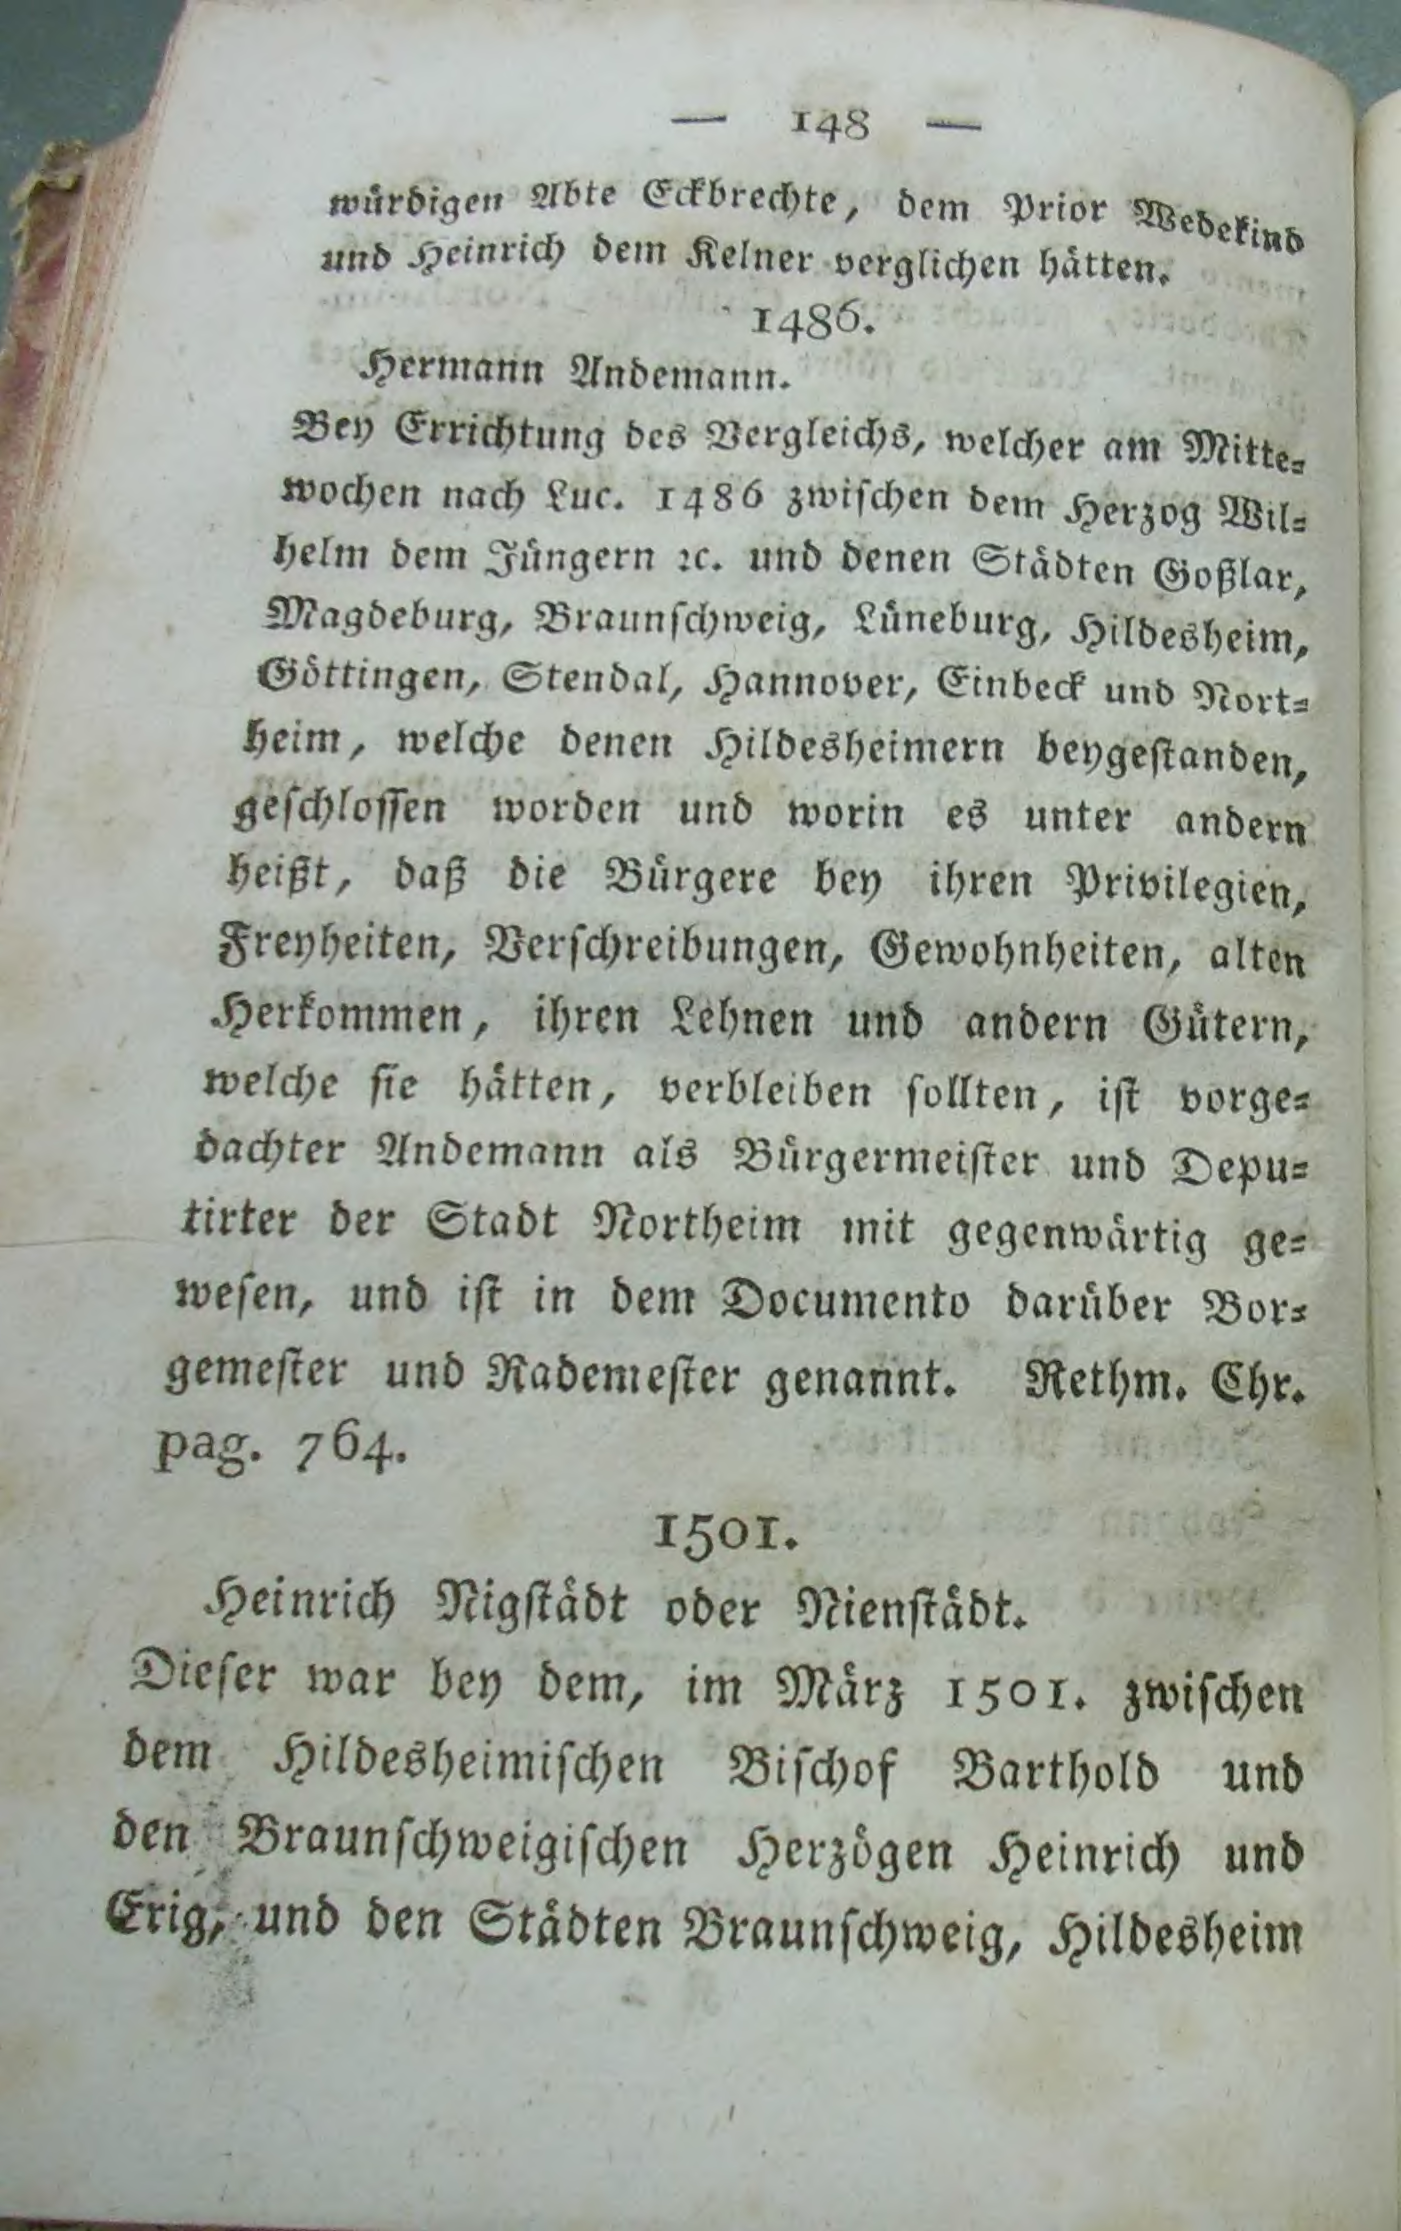 — 148 —
würdigen Abte Eckbrechte, dem Prior Wedekind
und Heinrich dem Kelner verglichen hätten.
1486.
Hermann Andemann.
Bey Errichtung des Vergleichs, welcher am Mitte-
wochen nach Luc. 1486 zwischen dem Herzog Wil-
helm dem Jüngern ꝛc. und denen Städten Goßlar,
Magdeburg, Braunschweig, Lüneburg, Hildesheim,
Göttingen, Stendal, Hannover, Einbeck und Nort-
heim, welche denen Hildesheimern beygestanden,
geschlossen worden und worin es unter andern
heißt, daß die Bürgere bey ihren Privilegien,
Freyheiten, Verschreibungen, Gewohnheiten, alten
Herkommen, ihren Lehnen und andern Gütern,
welche sie hätten, verbleiben sollten, ist vorge-
dachter Andemann als Bürgermeister und Depu-
tirter der Stadt Northeim mit gegenwärtig ge-
wesen, und ist in dem Documento darüber Bor-
gemester und Rademester genannt. Rethm. Chr.
pag. 764.
1501.
Heinrich Nigstädt oder Nienstädt.
Dieser war bey dem, im März 1501. zwischen
dem Hildesheimischen Bischof Barthold und
den Braunschweigischen Herzögen Heinrich und
Erig, und den Städten Braunschweig, Hildesheim